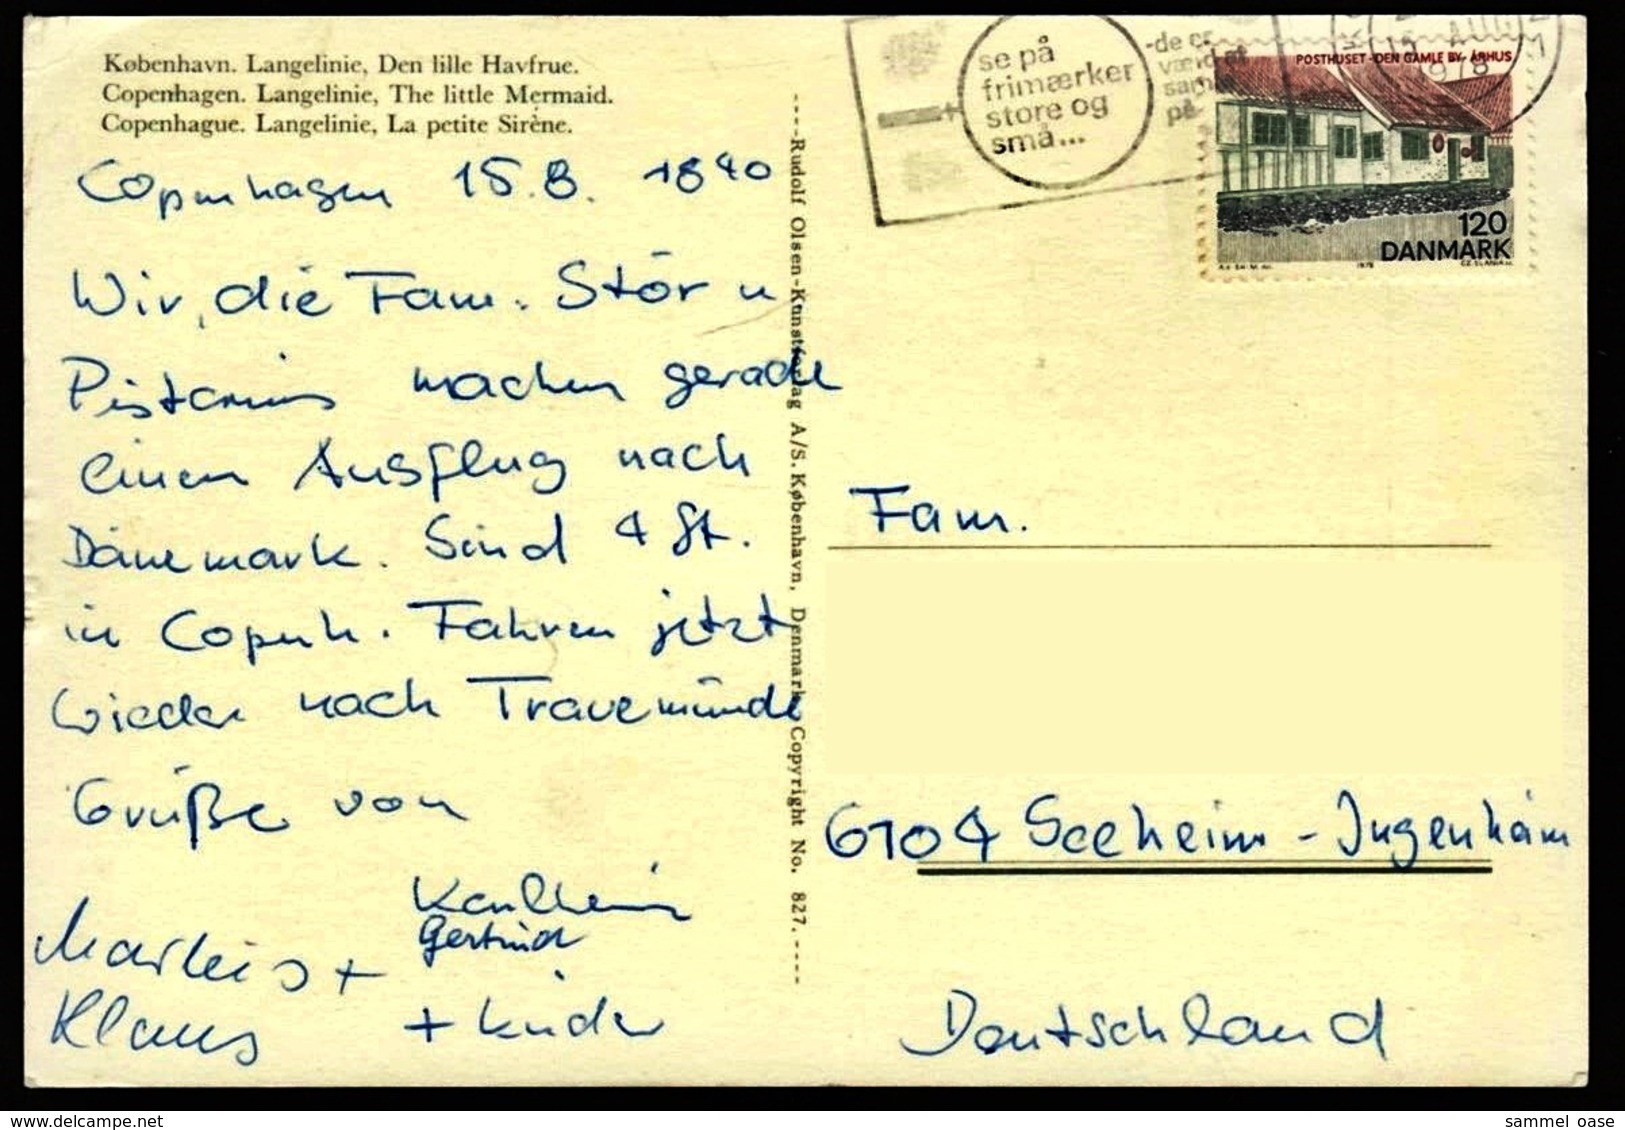 København. Langelinie, Den lille Havfrue.
Copenhagen. Langelinie, The little Mermaid.
Copenhague. Langelinie, La petite Sirène.
Copenhagen 15.8. 1840
Wir, die Fam. Stör u
Pistorius machen gerade
einen Ausflug nach
Dänemark. Sind 4 St.
in Copenh. Fahren jetzt
wieder nach Travemünde
Grüße von
Karlheinz
Gertrud
Marleis +
Klaus + Kinder
----Rudolf Olsen-Kunstforlag A/S. København, Denmark. Copyright No. 827.----
se på
frimærker
store og
små...
-de er
værd at
samle
på
AUG
1978
POSTHUSET-DEN GAMLE BY-ÅRHUS
120
DANMARK
1978
CZ. SLANIA sc.
Fam.
6104 Seeheim-Jugenheim
Deutschland
www.delcampe.net
sammel_oase